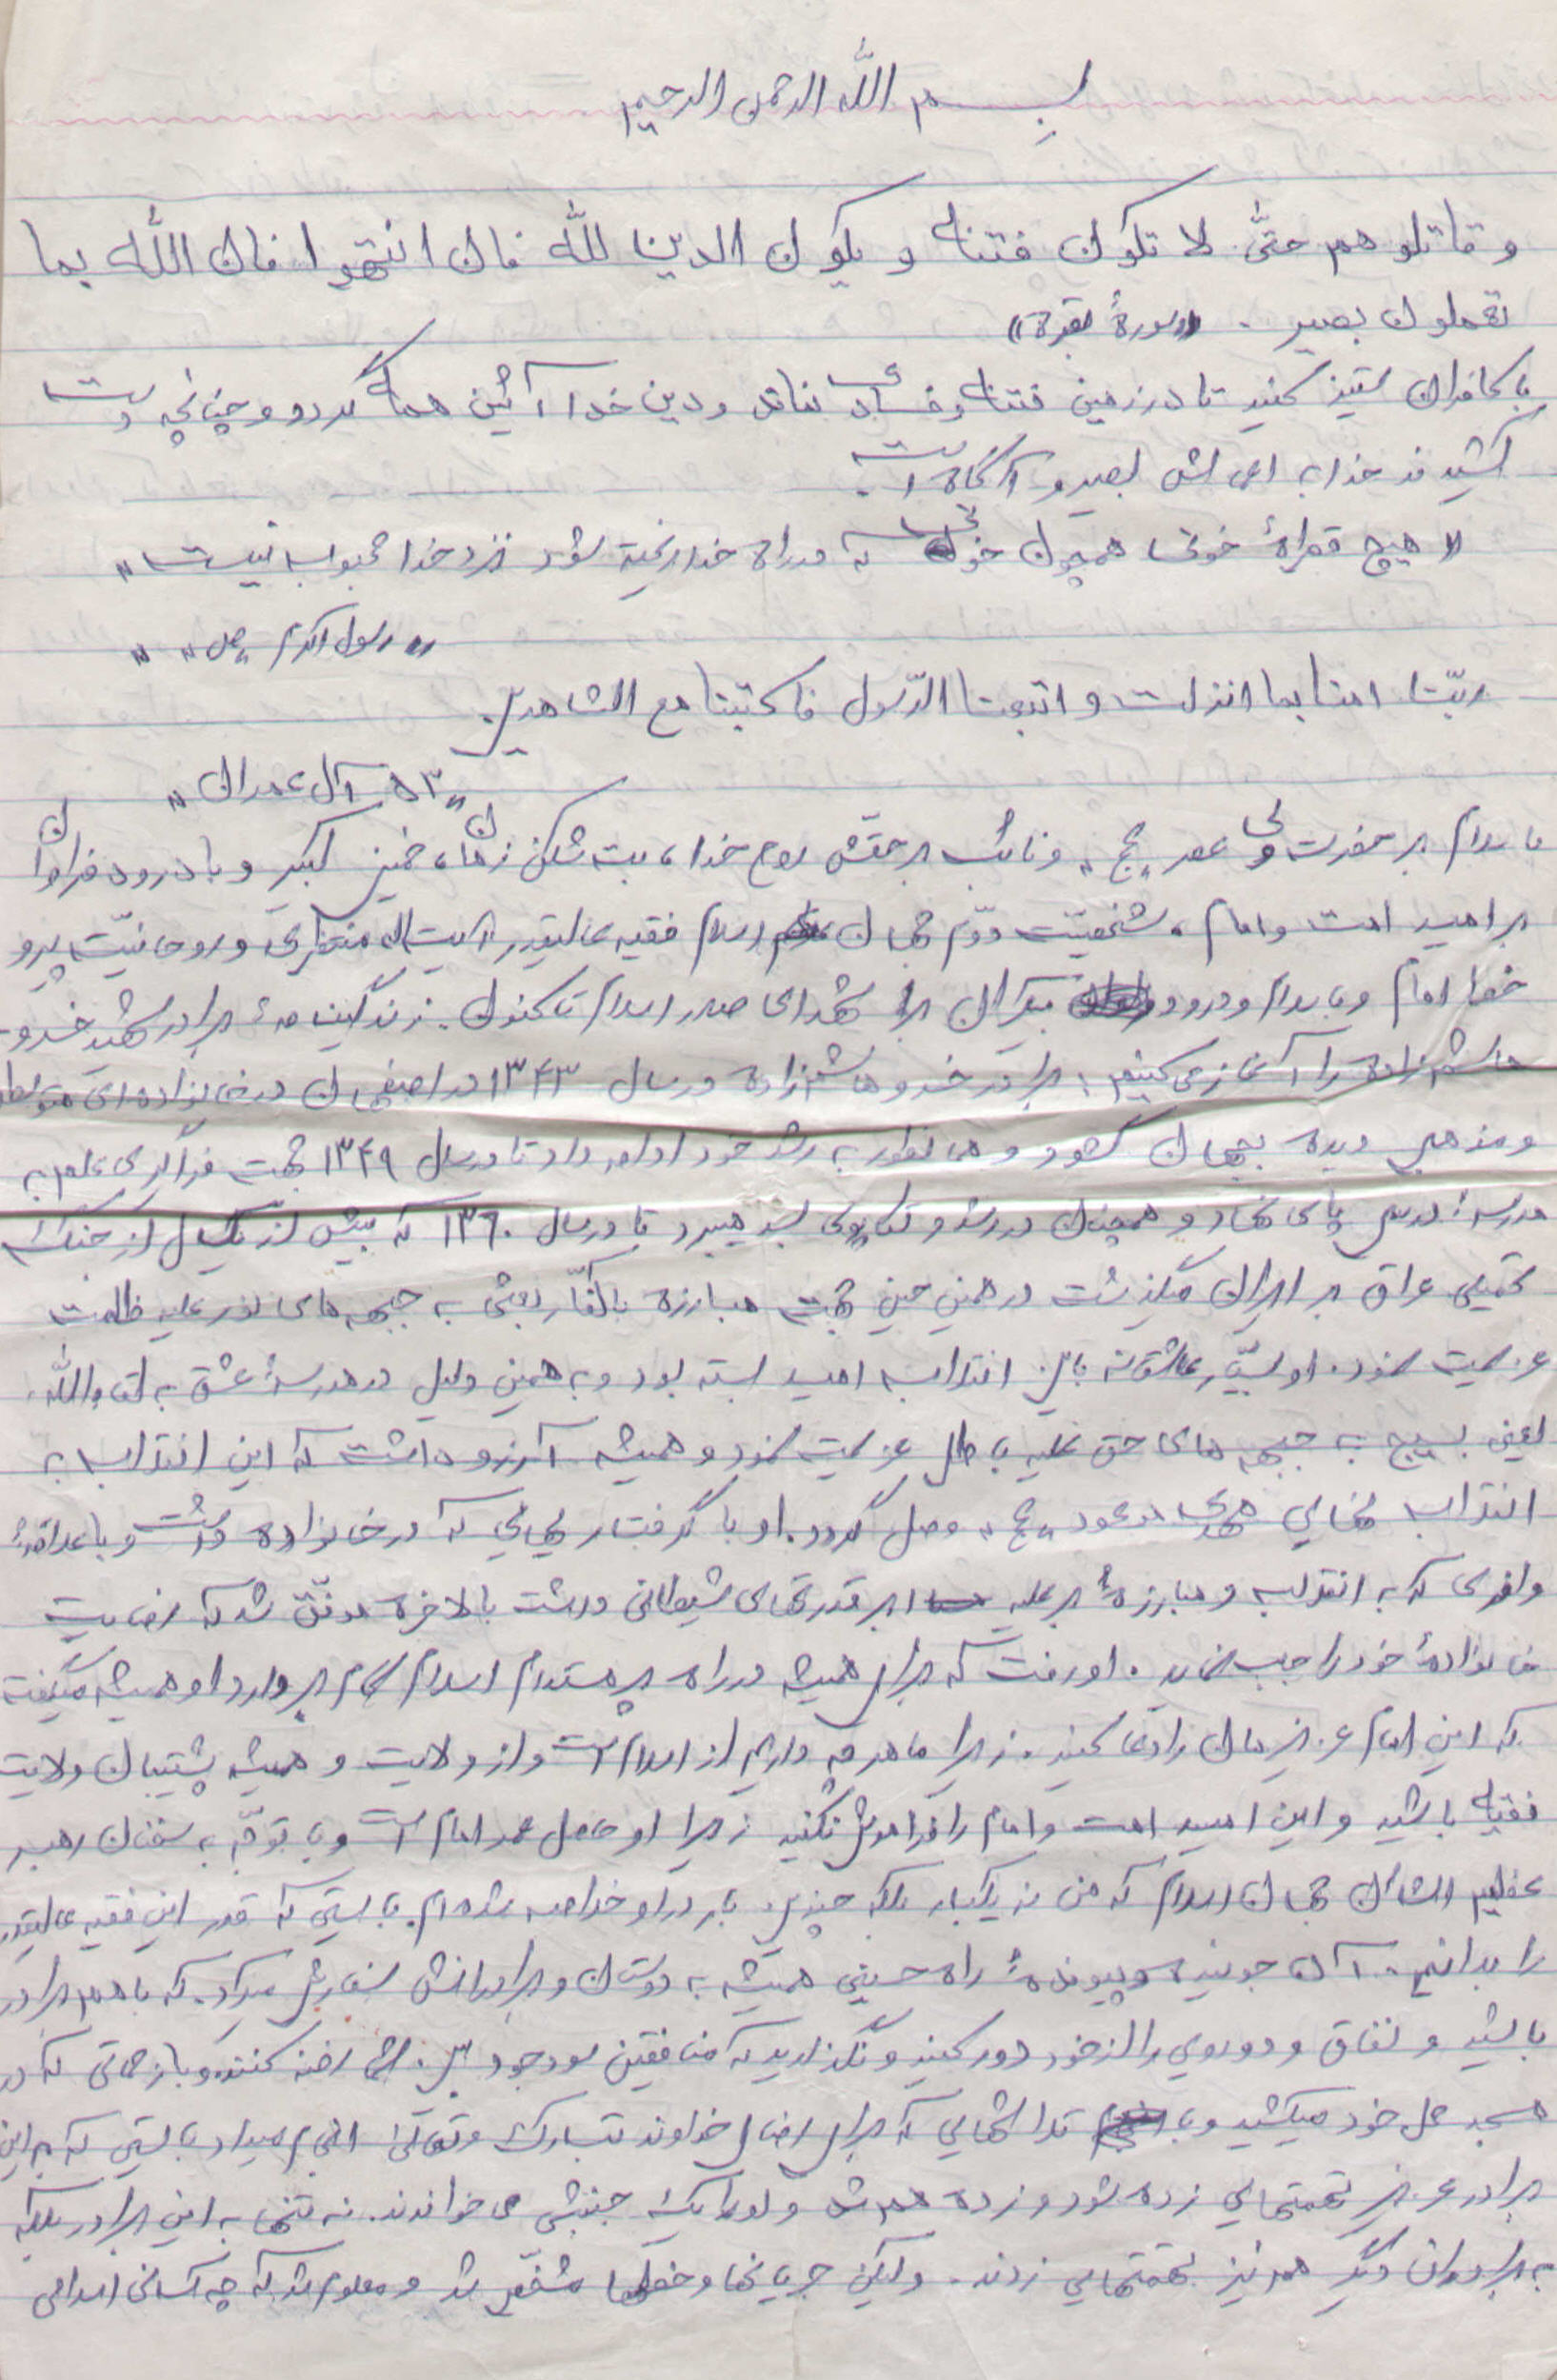 بسم الله الرحمن الرحیم
و قاتلوهم حتّی لا تکون فتنه و یکون الدین لله فان انتهوا فان الله بما
تعملون بصیر . «سورهٔ بقره»
با کافران ستیز کنید تا در زمین فتنه و فسادی نماند و دین خدا آئین همه گردد و چنانچه دست
کشیدند خدا به اعمالش بصیر و آگاه است.
«هیچ قطرهٔ خونی همچون خونی که در راه خدا ریخته شود نزد خدا محبوب نیست»
«رسول اکرم "ص"»
ربّنا امنا بما انزلت و اتبعنا الرّسول فاکتبنا مع الشاهدین.
«۵۳ آل عمران»
با سلام بر حضرت ولی عصر "عج" و نائب بر حقش روح خدا، بت شکن زمان، خمینی کبیر و با درود فراوان
بر امید امت و امام، شخصیّت دوّم جهان اسلام فقیه عالیقدر آیت الله منتظری و روحانیّت پیرو
خط امام و با سلام و درود بیکران بر شهدای صدر اسلام تا کنون. زندگینامهٔ برادر شهید خسرو
هاشم زاده را آغاز می کنیم. برادر خسرو هاشم زاده در سال ۱۳۴۳ در اصفهان در خانواده ای متوسط
و مذهبی دیده بجهان گشود و همانطور به رشد خود ادامه داد تا در سال ۱۳۴۹ جهت فراگیری علم به
مدرسه پای نهاد و همچنان در رشد و تکاپوی بسر میبرد تا در سال ۱۳۶۰ که بیش از یکسال از جنگ
تحمیلی عراق بر ایران میگذشت در همین حین جهت مبارزه با کفّار بعثی به جبهه های نور علیه ظلمت
عزیمت نمود. او بسیار عاشقانه باین انقلاب امید بسته بود و به همین دلیل در مدرسهٔ عشق به لقاءالله،
یعنی بسیج به جبهه های حق علیه باطل عزیمت نمود و همیشه آرزو داشت که این انقلاب به
انقلاب نهایی مهدی موعود "عج" وصل گردد. او با گرفتاریهایی که در خانواده داشت و با علاقهٔ
وافری که به انقلاب و مبارزهٔ بر علیه ابرقدرتهای شیطانی داشت بالاخره موفّق شد که رضایت
خانوادهٔ خود را جلب نماید. او رفت که برای همیشه در راه پر مستدام اسلام گام بردارد او همیشه میگفت
که این امام عزیزمان را دعا کنید. زیرا ما هر چه داریم از اسلام است و از ولایت و همیشه پشتیبان ولایت
فقیه باشید و این امید امت و امام را فراموش نکنید زیرا او حاصل عمر امام است و با توجّه به سخنان رهبر
عظیم الشأن جهان اسلام که من نه یکبار بلکه چندین بار در او خلاصه شده ام. بایستی که قدر این فقیه عالیقدر
را بدانیم. آن جوینده و پیوندهٔ راه حسینی همیشه به دوستان و برادرانش سفارش میکرد. که با هم برادر
باشید و نفاق و دورویی را از خود دور کنید و نگذارید که منافقین بوجود بین شما رخنه کنند. و با زحماتی که در
مسجد محل خود میکشید و با تلاشهایی که برای رضای خداوند تبارک و تعالی انجام میداد بایستی که به این
برادر عزیز تهمتهایی زده شود و زده هم شد و او را یک جنبشی می خواندند. نه تنها به این برادر بلکه
به برادران دیگر هم نیز تهمتهایی زدند. ولیکن جریانها و خطها مشخّص شد و معلوم شد که چه کسانی اسلامی